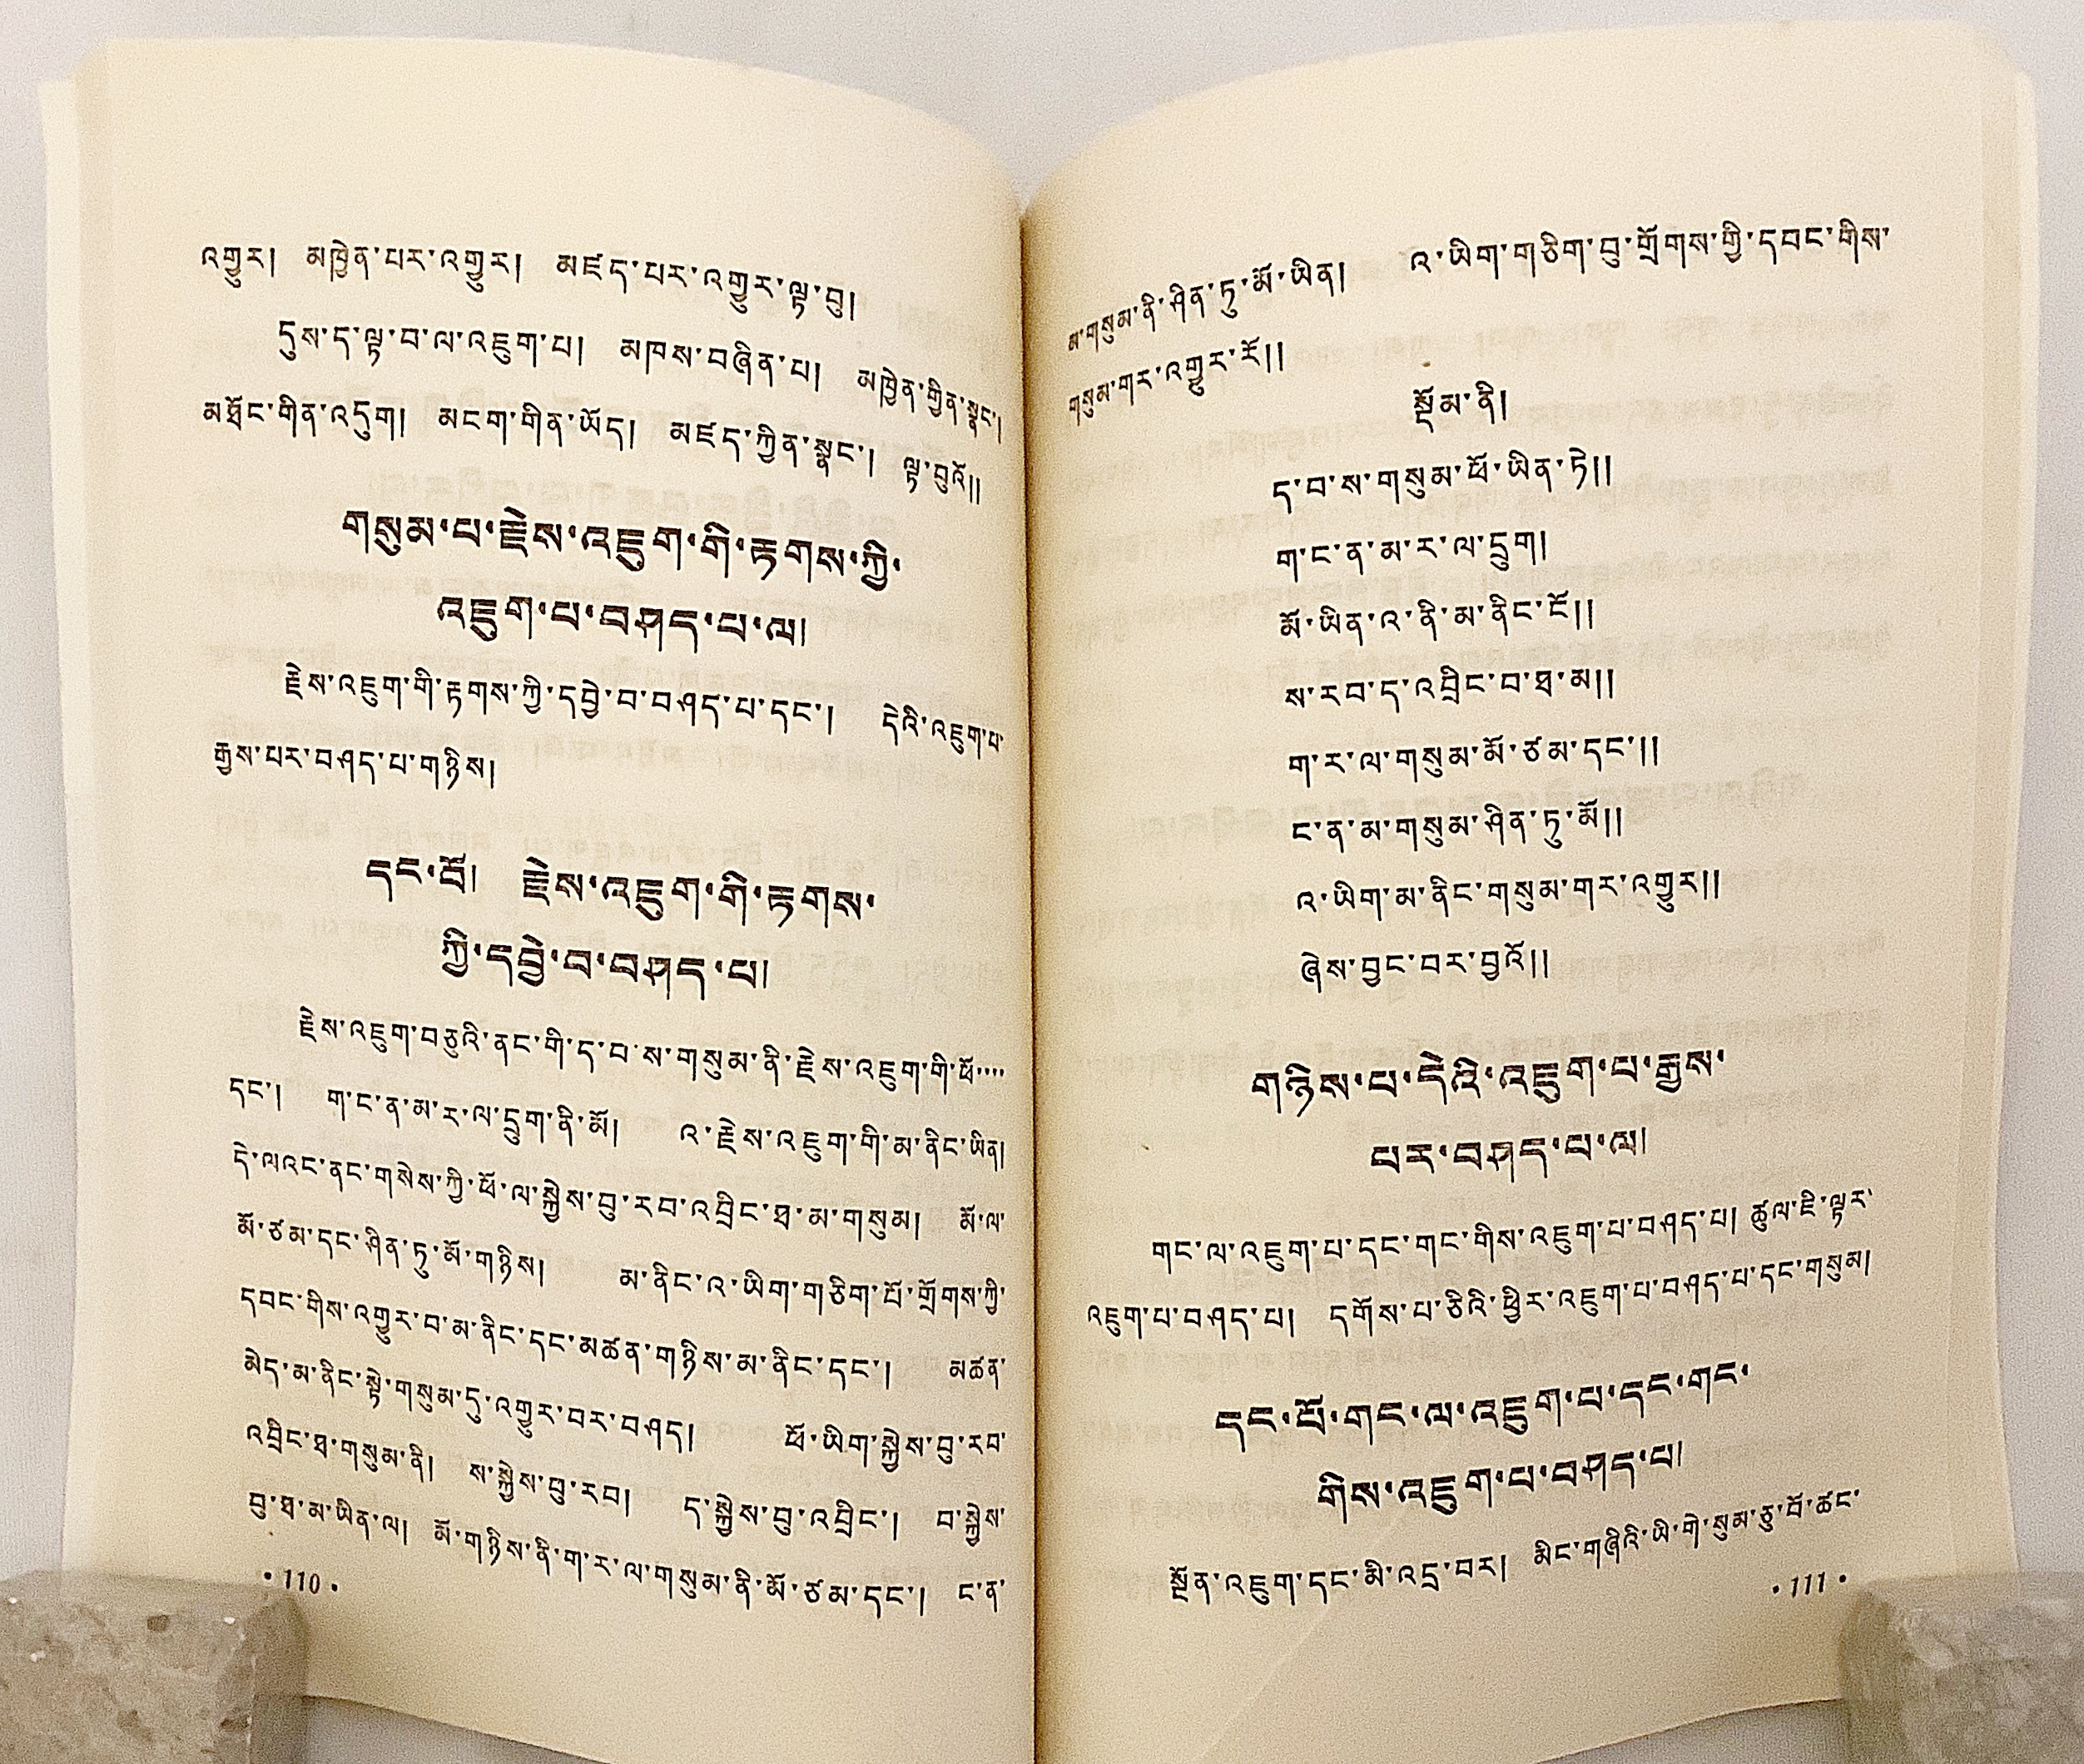 འགྱུར། མཁྱེན་པར་འགྱུར། མཛད་པར་འགྱུར་ལྟ་བུ།
དུས་ད་ལྟ་བ་ལ་འཇུག་པ། མཁས་བཞིན་པ། མཁྱེན་གྱིན་སྣང་།
མཐོང་གིན་འདུག། མངག་གིན་ཡོད། མཛད་ཀྱིན་སྣང་། ལྟ་བུའོ།།
གསུམ་པ་རྗེས་འཇུག་གི་རྟགས་ཀྱི་
འཇུག་པ་བཤད་པ་ལ།
རྗེས་འཇུག་གི་རྟགས་ཀྱི་དབྱེ་བ་བཤད་པ་དང་། དེའི་འཇུག་པ་
རྒྱས་པར་བཤད་པ་གཉིས།
དང་པོ། རྗེས་འཇུག་གི་རྟགས་
ཀྱི་དབྱེ་བ་བཤད་པ།
རྗེས་འཇུག་བཅུའི་ནང་གི་ད་བ་ས་གསུམ་ནི་རྗེས་འཇུག་གི་ཕོ་་་་
དང་། ག་ང་ན་མ་ར་ལ་དྲུག་ནི་མོ། འ་རྗེས་འཇུག་གི་མ་ནིང་ཡིན།
དེ་ལའང་ནང་གསེས་ཀྱི་ཕོ་ལ་སྐྱེས་བུ་རབ་འབྲིང་ཐ་མ་གསུམ། མོ་ལ་
མོ་ཙམ་དང་ཤིན་ཏུ་མོ་གཉིས། མ་ནིང་འ་ཡིག་གཅིག་པོ་གྲོགས་ཀྱི་
དབང་གིས་འགྱུར་བ་མ་ནིང་དང་མཚན་གཉིས་མ་ནིང་དང་། མཚན་
མེད་མ་ནིང་སྟེ་གསུམ་དུ་འགྱུར་བར་བཤད། ཕོ་ཡིག་སྐྱེས་བུ་རབ་
འབྲིང་ཐ་གསུམ་ནི། ས་སྐྱེས་བུ་རབ། ད་སྐྱེས་བུ་འབྲིང་། བ་སྐྱེས་
བུ་ཐ་མ་ཡིན་ལ། མོ་གཉིས་ནི་ག་ར་ལ་གསུམ་ནི་མོ་ཙམ་དང་། ང་ན་
• 110 •
མ་གསུམ་ནི་ཤིན་ཏུ་མོ་ཡིན། འ་ཡིག་གཅིག་བུ་གྲོགས་ཀྱི་དབང་གིས་
གསུམ་གར་འགྱུར་རོ།།
སྡོམ་ནི།
ད་བ་ས་གསུམ་ཕོ་ཡིན་ཏེ།།
ག་ང་ན་མ་ར་ལ་དྲུག།
མོ་ཡིན་འ་ནི་མ་ནིང་ངོ།།
ས་རབ་ད་འབྲིང་བ་ཐ་མ།།
ག་ར་ལ་གསུམ་མོ་ཙམ་དང་།།
ང་ན་མ་གསུམ་ཤིན་ཏུ་མོ།།
འ་ཡིག་མ་ནིང་གསུམ་གར་འགྱུར།།
ཞེས་བྱང་བར་བྱའོ།།
གཉིས་པ་དེའི་འཇུག་པ་རྒྱས་
པར་བཤད་པ་ལ།
གང་ལ་འཇུག་པ་དང་གང་གིས་འཇུག་པ་བཤད་པ། ཚུལ་ཇི་ལྟར་
འཇུག་པ་བཤད་པ། དགོས་པ་ཅིའི་ཕྱིར་འཇུག་པ་བཤད་པ་དང་གསུམ།
དང་པོ་གང་ལ་འཇུག་པ་དང་གང་
གིས་འཇུག་པ་བཤད་པ།
སྔོན་འཇུག་དང་མི་འདྲ་བར། མིང་གཞིའི་ཡི་གེ་སུམ་ཅུ་པོ་ཚང་
• 111 •